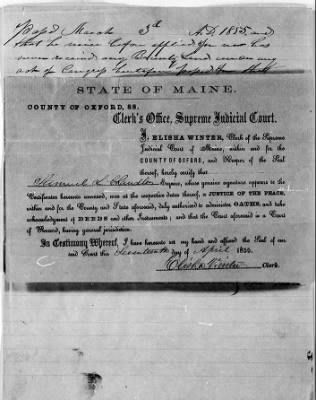 Pass'd March 3d A.D. 1855, and
that he never before applied for nor has
never received any Bounty Land under any
act of Congress
STATE OF MAINE.
COUNTY OF OXFORD, SS.
Clerk's Office, Supreme Judicial Court.
I, ELISHA WINTER, Clerk of the Supreme
Judicial Court of Maine, within and for the
COUNTY OF OXFORD, and Keeper of the Seal
thereof, hereby certify that
Samuel L. Chandler Esquire, whose genuine signature appears to the
Certificates hereunto annexed, was at the respective dates thereof, a JUSTICE OF THE PEACE,
within and for the County and State aforesaid, duly authorized to administer OATHS, and take
acknowledgment of DEEDS and other Instruments; and that the Court aforesaid is a Court
of Record, having general jurisdiction.
In Testimony Whereof, I have hereunto set my hand and affixed the Seal of our
said Court this Seventeenth day of April 1855.
Elisha Winter Clerk.